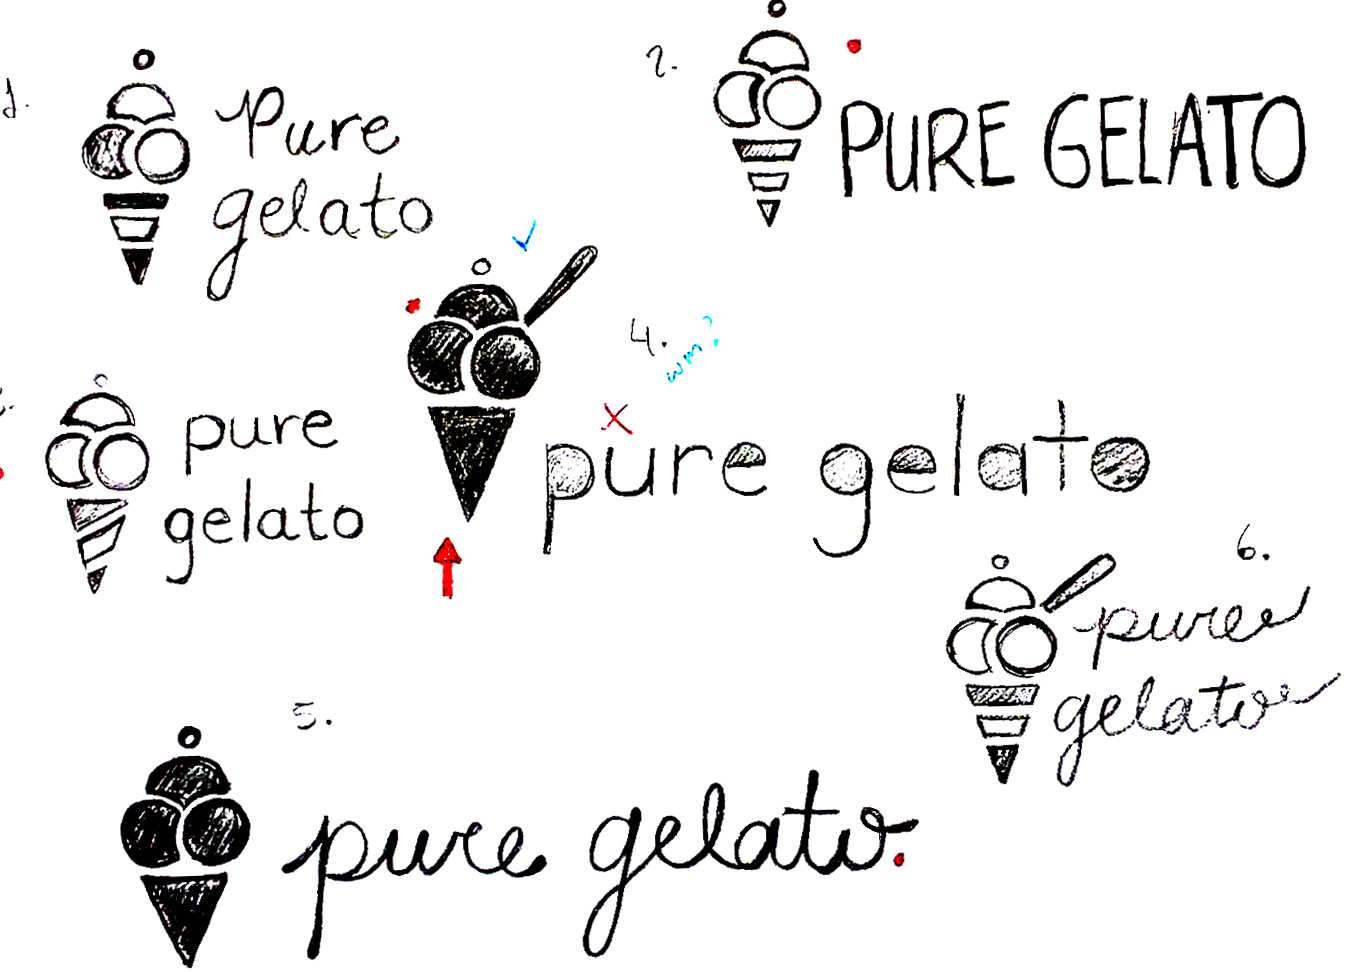 1.
Pure
gelato
2.
PURE GELATO
pure
gelato
4.
wm?
pure gelato
5.
pure gelato.
6.
pure
gelato